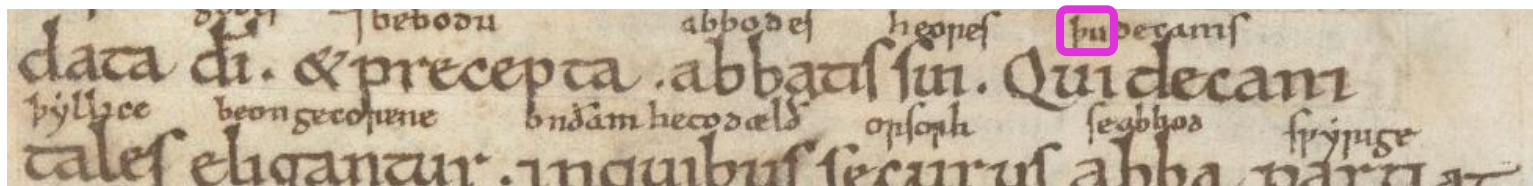 ⁊bebodu abbodes heores þu decanis
data di̅. & precepta .abbatis sui. Qui decani
þyllice beon gecorene onðam he todælð orsorh se abbod
tales eligantur. inquibus securus abba partiat